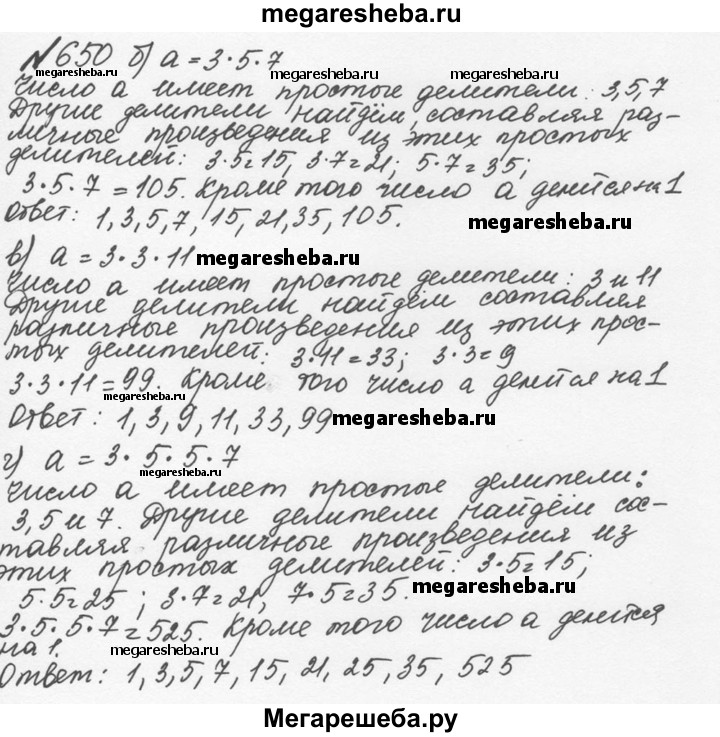 megaresheba.ru
№650 б) a = 3·5·7
megaresheba.ru megaresheba.ru megaresheba.ru
Число а имеет простые делители: 3,5,7
Другие делители найдём, составляя раз-
личные произведения из этих простых
делителей: 3·5=15, 3·7=21; 5·7=35;
3·5·7=105. Кроме того число а делится на 1
Ответ: 1,3,5,7,15,21,35,105. megaresheba.ru
в) a = 3·3·11 megaresheba.ru
Число а имеет простые делители: 3 и 11
Другие делители найдём составляя
различные произведения из этих прос-
тых делителей: 3·11=33; 3·3=9
3·3·11=99. Кроме того число а делится на 1
megaresheba.ru
Ответ: 1,3,9,11,33,99 megaresheba.ru
г) a = 3·5·5·7
megaresheba.ru
Число а имеет простые делители:
3,5 и 7. Другие делители найдём сос-
тавляя различные произведения из
этих простых делителей: 3·5=15;
5·5=25; 3·7=21, 7·5=35. megaresheba.ru
3·5·5·7=525. Кроме того число а делится
на 1. megaresheba.ru
Ответ: 1,3,5,7,15,21,25,35,525
Мегарешеба.ру